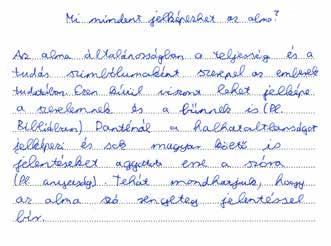 Mi mindent jelképezhet az alma?
Az alma általánosságban a teljesség és a
tudás szimbólumaként szerepel az emberek
tudatában. Ezen kívül viszont lehet jelképe
a szerelemnek és a bűnnek is (Pl.
Bibliában) Danténál a halhatatlanságot
jelképezi és sok magyar költő is
jelentéseket aggatott erre a szóra
(Pl. anyaság). Tehát mondhatjuk, hogy
az alma szó rengeteg jelentéssel
bír.